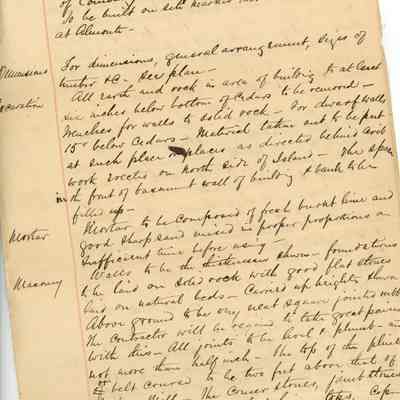 of
to be built on site marked
at Almonte.
Dimensions
For dimensions, general arrangement, sizes of
timber &c. See plan —
Excavation
All earth and rock in area of building to at least
six inches below bottom of Cedars to be removed —
Trenches for walls to solid rock — For dwarf walls
15" below Cedars — Material taken and to be put
at such place or places as directed behind Crib
work erected on north side of Island — The space
in the front of basement wall of building & bank to be
filled up —
Mortar
Mortar to be composed of fresh burnt lime and
good sharp sand mixed in proper proportions a
sufficient time before using —
Masonry
Walls to be the thicknesses shown — foundations
to be laid on solid rock with good flat stones
laid on natural beds — Carried up heights shown
Above ground to be one, neat square jointed rubble
The Contractor will be required to take great pains
with this — All joints to be level & plumb — and
not more than half inch — The top of the plinth
or belt course to be two feet above that of
Mill — The Corner stones, joint stones